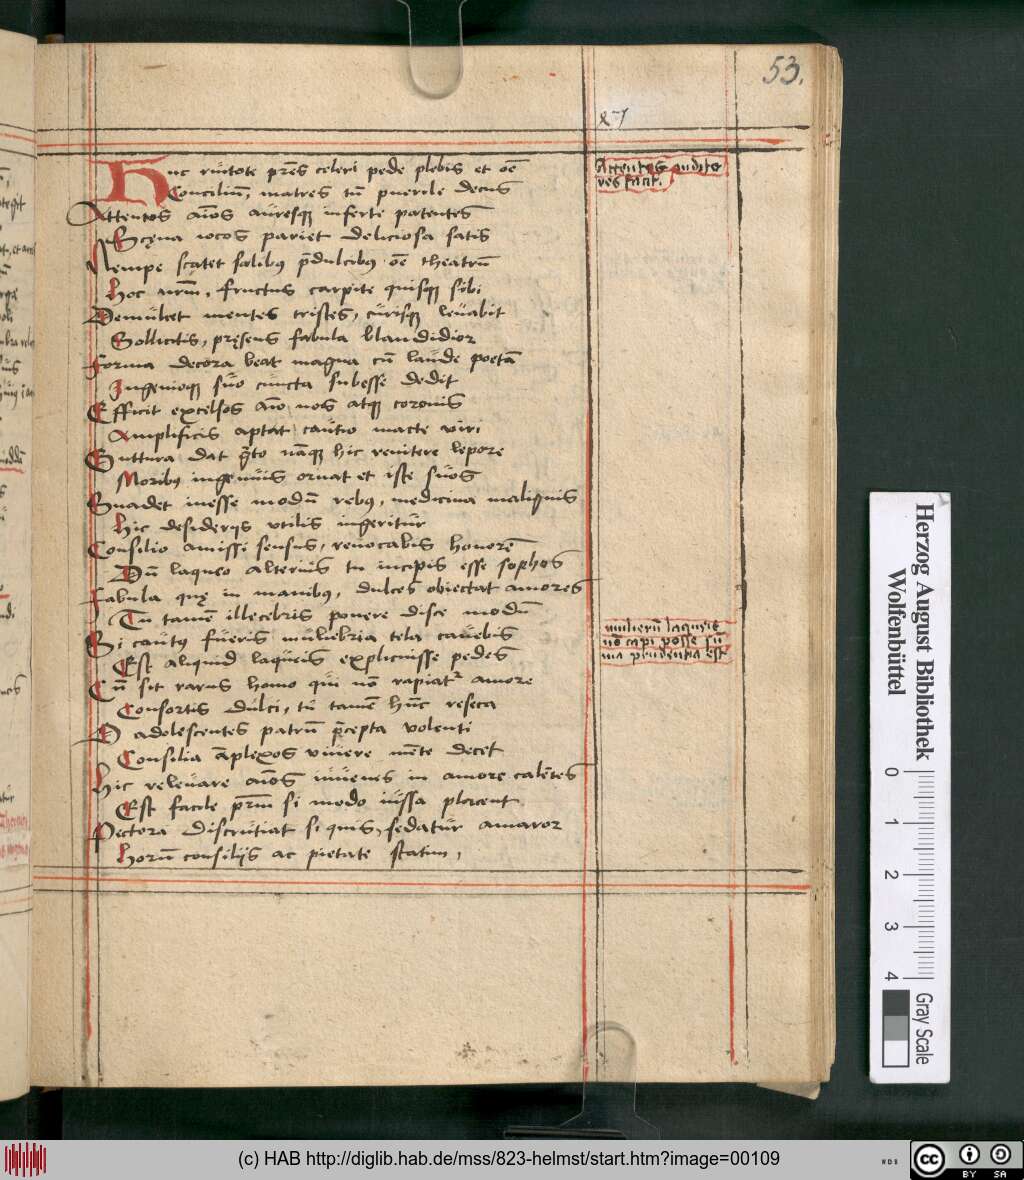 53.
Huc ruitote pr̄es celeri pede plebis et oē
Conciliū, matres tū puerile decus
Attentos aīos auresq; inferte patentes
Scęna iocos pariet deliciosa satis
Nempe scatet salibꝰ p̄dulcibꝰ oē theatrū
Hoc nr̄m, fructus carpite quisq; sibi
Demulcet mentes tristes, curisq; leuabit
Sollicitis, pręsens fabula blandidior
Forma decora beat magna cū laude poetā
Ingenioq; suo cuncta subesse dedit
Efficit excelsos aīo nos atq; coronis
Amplificis aptat cautio macte viri
Guttura dat grato nāq; hic renitere lepore
Moribꝰ ingenuis ornat et iste suos
Suadet inesse modū rebꝰ, medicina malignis
Hic desiderijs utilis ingeritur
Consilio amissi sensus, reuocabis honorē
Dū laqueo alterius tu incipis esse sophos
Fabula quę in manibus, dulces obiectat amores
Tu tamē illecebris ponere disce modū
Si cautꝰ fueris muliebria tela cauebis
Est aliquid laqueis explicuisse pedes
Cū sit rarus homo qui nō rapiatr amore
Consortis dulci, tu tamē hūc reseca
O adolescentes patrū p̄cepta volenti
Consilia āplexos viuere mēte decet
Hic releuare aīos iuuenes in amore calētes
Est facile pr̄m si modo iussa placent
Pectora discrutiat si quis, sedatur amaror
Horū consilijs ac pietate statim,
Attentos audito
res facit.
mulierū laqueis
nō capi posse sū
ma prudentia est
Herzog August Bibliothek
Wolfenbüttel
0 1 2 3 4
Gray Scale
(c) HAB http://diglib.hab.de/mss/823-helmst/start.htm?image=00109
WDB
cc BY SA